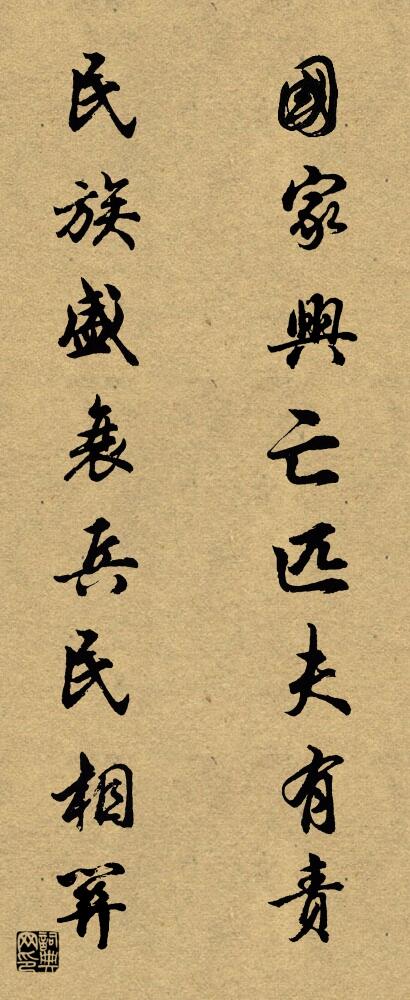 國家興亡匹夫有責
民族盛衰兵民相關
詞典
网印